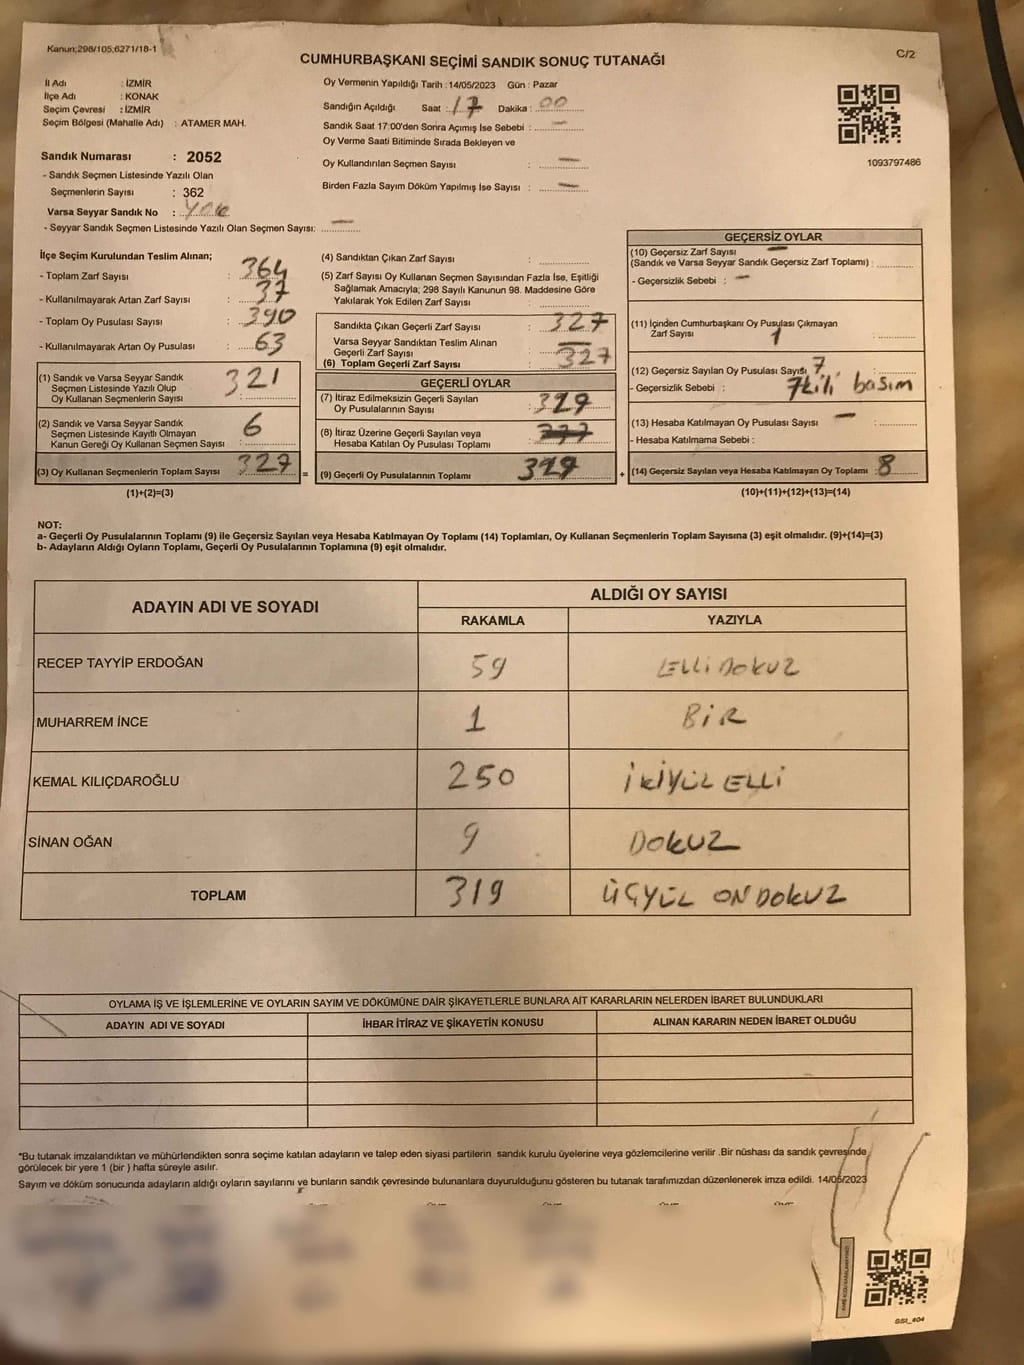 Kanun;298/105;6271/18-1
C/2
CUMHURBAŞKANI SEÇİMİ SANDIK SONUÇ TUTANAĞI
İl Adı : İZMİR
İlçe Adı : KONAK
Seçim Çevresi : İZMİR
Seçim Bölgesi (Mahalle Adı) : ATAMER MAH.
Sandık Numarası : 2052
- Sandık Seçmen Listesinde Yazılı Olan
Seçmenlerin Sayısı : 362
Varsa Seyyar Sandık No : YOK
- Seyyar Sandık Seçmen Listesinde Yazılı Olan Seçmen Sayısı: —
Oy Vermenin Yapıldığı Tarih : 14/05/2023 Gün : Pazar
Sandığın Açıldığı Saat : 17 Dakika : 00
Sandık Saat 17:00'den Sonra Açımış İse Sebebi : —
Oy Verme Saati Bitiminde Sırada Bekleyen ve
Oy Kullandırılan Seçmen Sayısı : —
Birden Fazla Sayım Döküm Yapılmış İse Sayısı : —
1093797486
İlçe Seçim Kurulundan Teslim Alınan;
- Toplam Zarf Sayısı : 364
- Kullanılmayarak Artan Zarf Sayısı : 37
- Toplam Oy Pusulası Sayısı : 390
- Kullanılmayarak Artan Oy Pusulası : 63
(1) Sandık ve Varsa Seyyar Sandık
Seçmen Listesinde Yazılı Olup
Oy Kullanan Seçmenlerin Sayısı : 321
(2) Sandık ve Varsa Seyyar Sandık
Seçmen Listesinde Kayıtlı Olmayan
Kanun Gereği Oy Kullanan Seçmen Sayısı : 6
(3) Oy Kullanan Seçmenlerin Toplam Sayısı 327
(1)+(2)=(3)
(4) Sandıktan Çıkan Zarf Sayısı :
(5) Zarf Sayısı Oy Kullanan Seçmen Sayısından Fazla İse, Eşitliği
Sağlamak Amacıyla; 298 Sayılı Kanunun 98. Maddesine Göre
Yakılarak Yok Edilen Zarf Sayısı :
Sandıkta Çıkan Geçerli Zarf Sayısı : 327
Varsa Seyyar Sandıktan Teslim Alınan
Geçerli Zarf Sayısı : —
(6) Toplam Geçerli Zarf Sayısı : 327
GEÇERLİ OYLAR
(7) İtiraz Edilmeksizin Geçerli Sayılan
Oy Pusulalarının Sayısı : 319
(8) İtiraz Üzerine Geçerli Sayılan veya
Hesaba Katılan Oy Pusulası Toplamı :
(9) Geçerli Oy Pusulalarının Toplamı 319
GEÇERSİZ OYLAR
(10) Geçersiz Zarf Sayısı —
(Sandık ve Varsa Seyyar Sandık Geçersiz Zarf Toplamı) :
- Geçersizlik Sebebi : —
(11) İçinden Cumhurbaşkanı Oy Pusulası Çıkmayan
Zarf Sayısı 1 :
(12) Geçersiz Sayılan Oy Pusulası Sayısı 7 :
- Geçersizlik Sebebi : basım
(13) Hesaba Katılmayan Oy Pusulası Sayısı — :
- Hesaba Katılmama Sebebi :
(14) Geçersiz Sayılan veya Hesaba Katılmayan Oy Toplamı : 8
(10)+(11)+(12)+(13)=(14)
NOT:
a- Geçerli Oy Pusulalarının Toplamı (9) ile Geçersiz Sayılan veya Hesaba Katılmayan Oy Toplamı (14) Toplamları, Oy Kullanan Seçmenlerin Toplam Sayısına (3) eşit olmalıdır. (9)+(14)=(3)
b- Adayların Aldığı Oyların Toplamı, Geçerli Oy Pusulalarının Toplamına (9) eşit olmalıdır.
ADAYIN ADI VE SOYADI ALDIĞI OY SAYISI
RAKAMLA YAZIYLA
RECEP TAYYİP ERDOĞAN 59 ELLİ DOKUZ
MUHARREM İNCE 1 BİR
KEMAL KILIÇDAROĞLU 250 İKİYÜZ ELLİ
SİNAN OĞAN 9 DOKUZ
TOPLAM 319 ÜÇYÜZ ONDOKUZ
OYLAMA İŞ VE İŞLEMLERİNE VE OYLARIN SAYIM VE DÖKÜMÜNE DAİR ŞİKAYETLERLE BUNLARA AİT KARARLARIN NELERDEN İBARET BULUNDUKLARI
ADAYIN ADI VE SOYADI İHBAR İTİRAZ VE ŞİKAYETİN KONUSU ALINAN KARARIN NEDEN İBARET OLDUĞU
*Bu tutanak imzalandıktan ve mühürlendikten sonra seçime katılan adayların ve talep eden siyasi partilerin sandık kurulu üyelerine veya gözlemcilerine verilir .Bir nüshası da sandık çevresinde
görülecek bir yere 1 (bir ) hafta süreyle asılır.
Sayım ve döküm sonucunda adayların aldığı oyların sayılarını ve bunların sandık çevresinde bulunanlara duyurulduğunu gösteren bu tutanak tarafımızdan düzenlenerek imza edildi. 14/05/2023